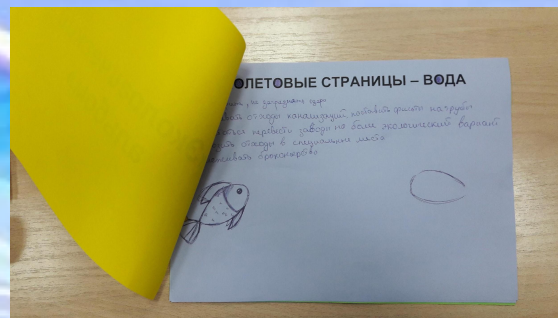 ОЛЕТОВЫЕ СТРАНИЦЫ – ВОДА
не загрязнять
отходы канализаций, поставить фильтры на трубы
перевести заводы на более экологический вариант
отходы в специальные места
браконьерство